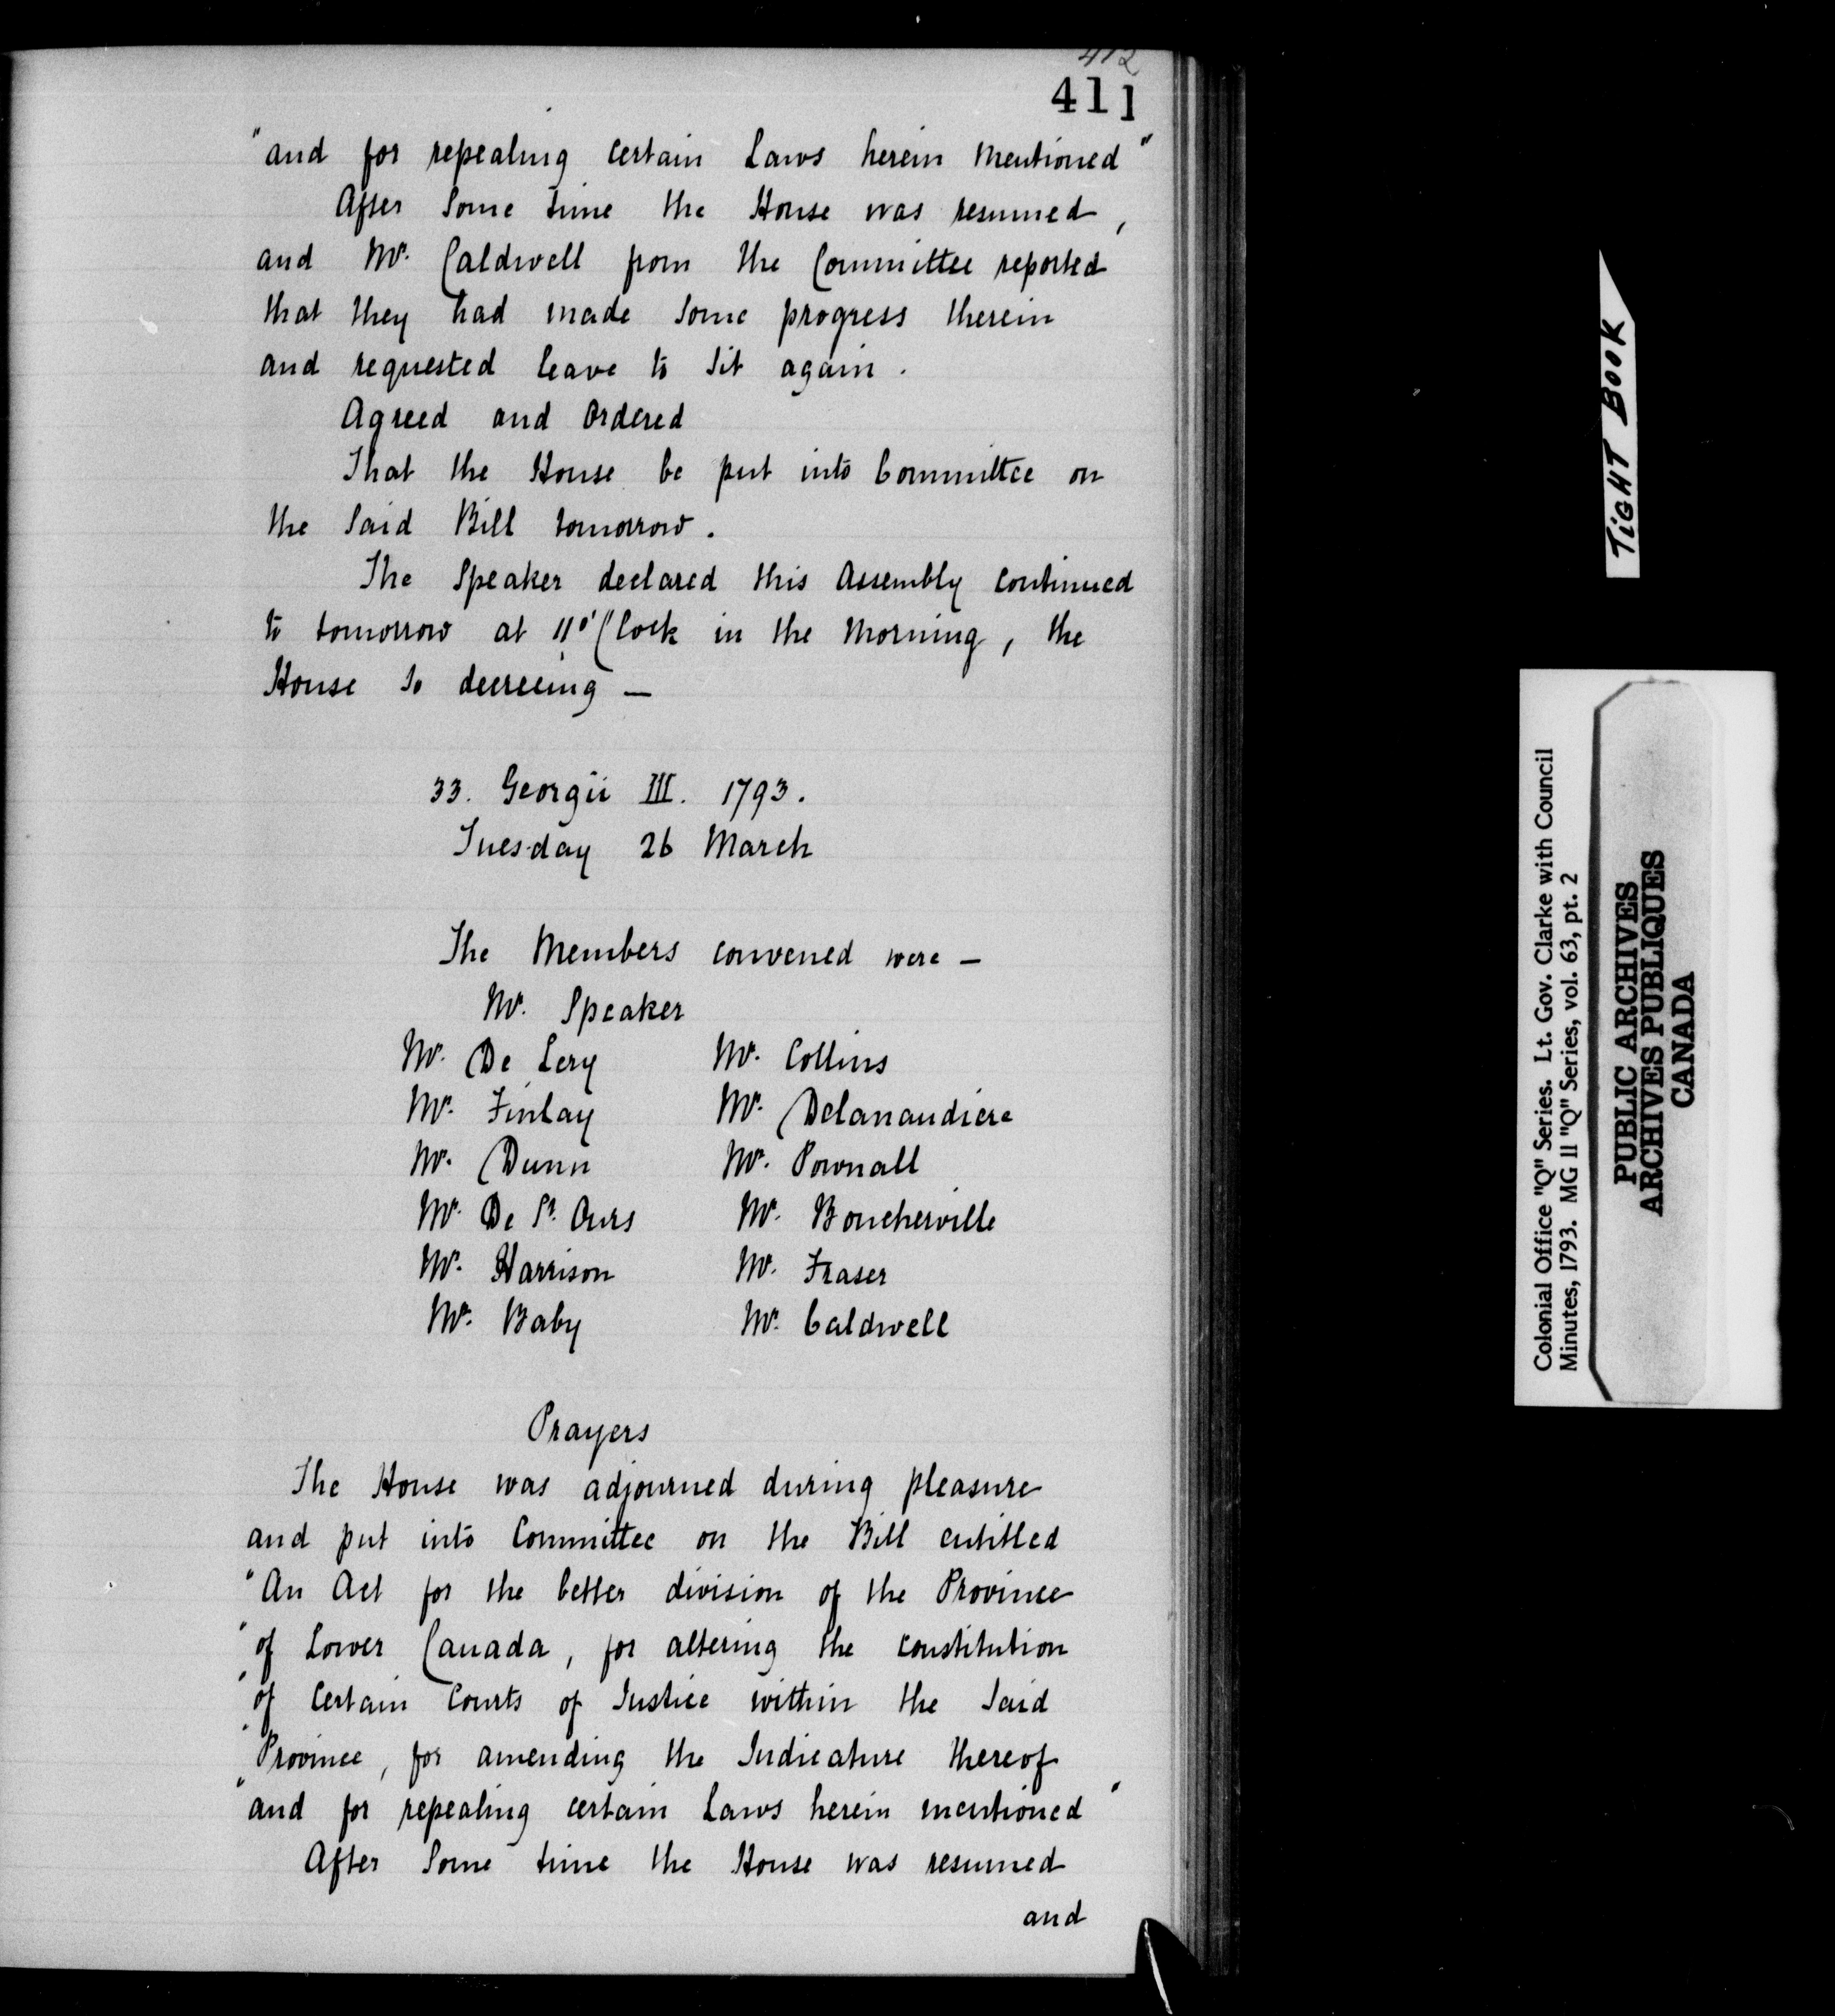 412
411
"and for repealing certain Laws herein mentioned"
After some time the House was resumed,
and Mr. Caldwell from the Committee reported
that they had made some progress therein
and requested leave to sit again.
Agreed and Ordered
That the House be put into Committee on
the said Bill tomorrow.
The Speaker declared this Assembly continued
to tomorrow at 11 o'Clock in the Morning, the
House so decreeing —
33. Georgii III. 1793.
Tuesday 26 March
The Members convened were —
Mr. Speaker
Mr. De Lery Mr. Collins
Mr. Finlay Mr. Delanaudiere
Mr. Dunn Mr. Pownall
Mr. De St. Ours Mr. Boucherville
Mr. Harrison Mr. Fraser
Mr. Baby Mr. Caldwell
Prayers
The House was adjourned during pleasure
and put into Committee on the Bill entitled
"An Act for the better division of the Province
"of Lower Canada, for altering the constitution
"of certain Courts of Justice within the said
"Province, for amending the Judicature thereof
"and for repealing certain Laws herein mentioned"
After some time the House was resumed
and
TIGHT BOOK
Colonial Office "Q" Series. Lt. Gov. Clarke with Council
Minutes, 1793. MG 11 "Q" Series, vol. 63, pt. 2
PUBLIC ARCHIVES
ARCHIVES PUBLIQUES
CANADA